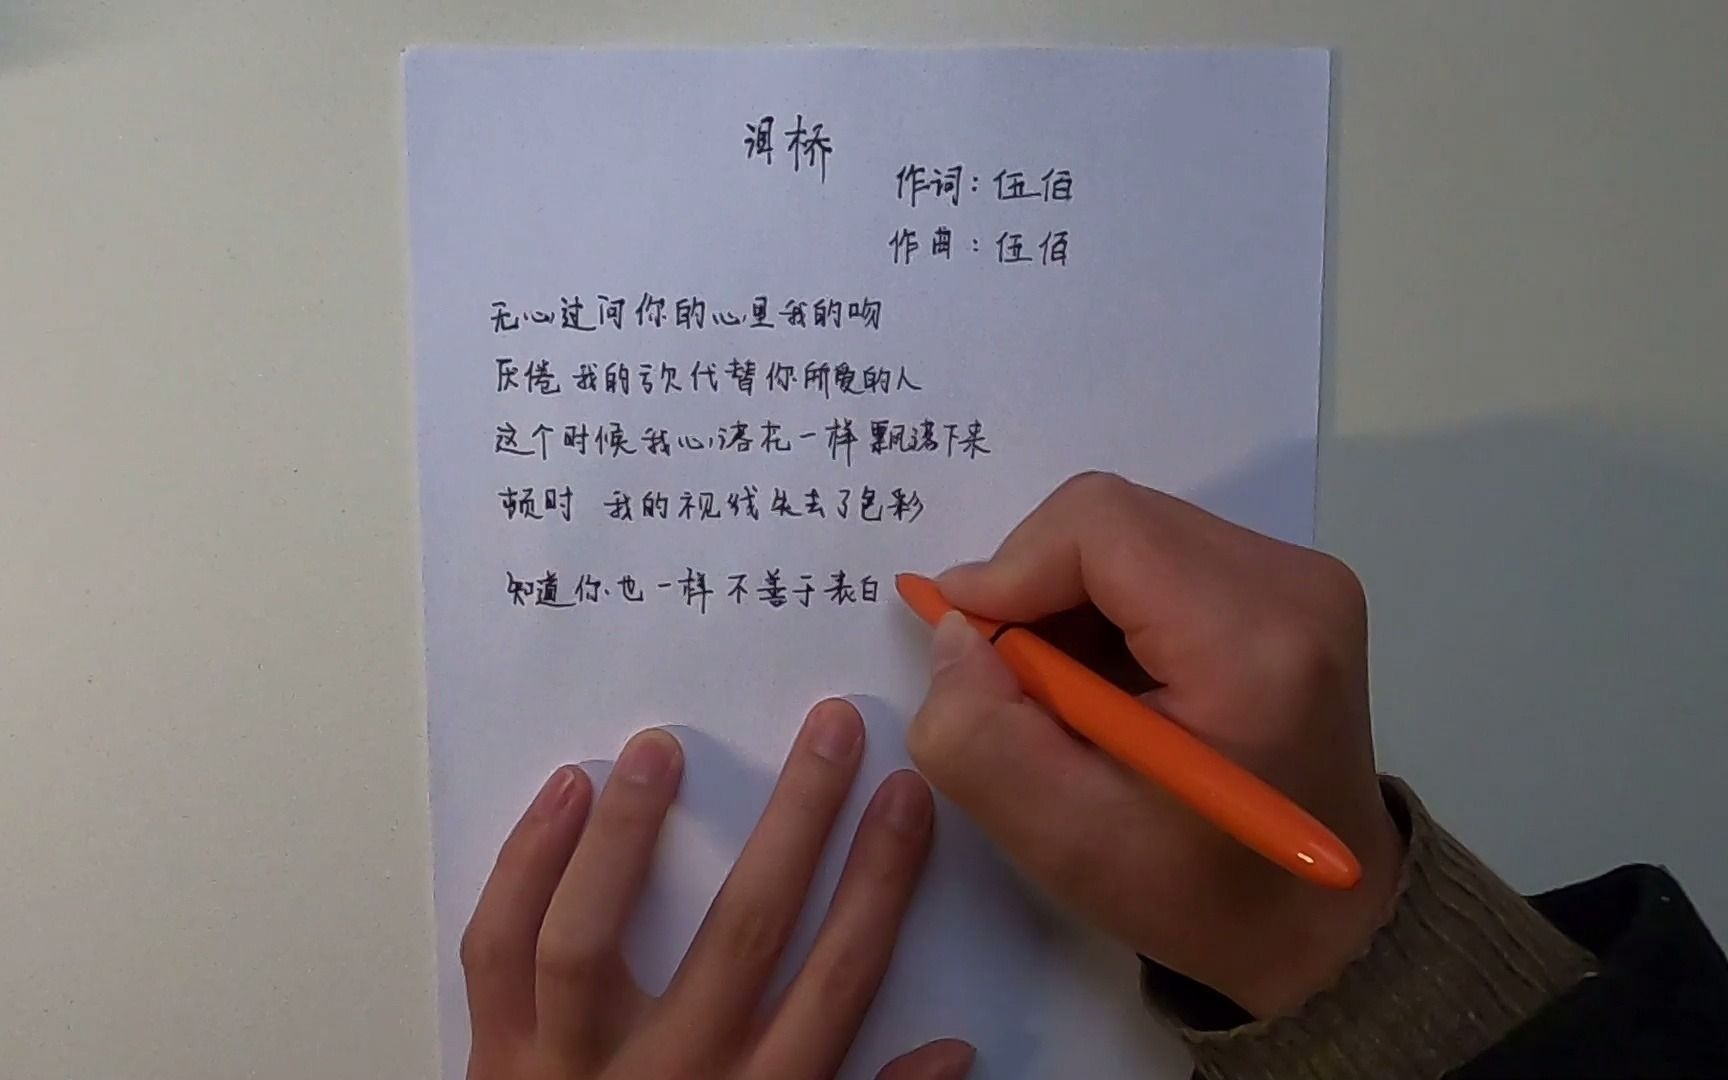 泪桥
作词：伍佰
作曲：伍佰
无心过问你的心里我的吻
厌倦我的亏欠代替你所爱的人
这个时候我心落花一样飘落下来
顿时 我的视线失去了色彩
知道你也一样不善于表白